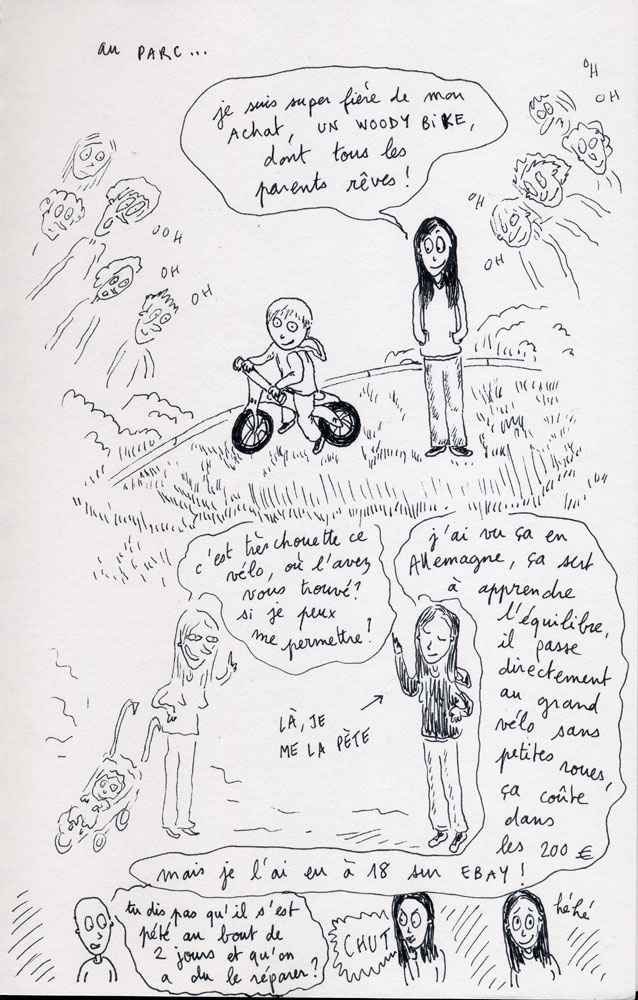 au PARC...
je suis super fière de mon
Achat, UN WOODY BIKE,
dont tous les
parents rêves !
OH
OH
OH
OH
OOH
OH
OH
c'est très chouette ce
vélo, où l'avez
vous trouvé ?
si je peux
me permettre ?
j'ai vu ça en
Allemagne, ça sert
à apprendre
l'équilibre,
il passe
directement
au grand
vélo sans
petites roues,
ça coûte
dans
les 200 €
mais je l'ai eu à 18 sur EBAY !
LÀ, JE
ME LA PÈTE
tu dis pas qu'il s'est
pété au bout de
2 jours et qu'on
a du le réparer ?
CHUT
héhé